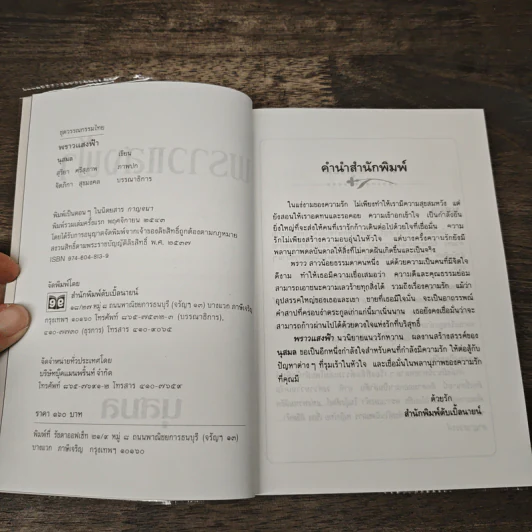 อุดวรรณกรรมไทย
พราวแสงฟ้า
นุสมล เขียน
สุริยา ศรีสุภาพ ภาพปก
จิตติกา สุขมงคล บรรณาธิการ
พิมพ์เป็นตอนๆ ในนิตยสาร กาญจนา
พิมพ์รวมเล่มครั้งแรก พฤศจิกายน ๒๕๔๓
โดยได้รับการอนุญาตจัดพิมพ์จากเจ้าของลิขสิทธิ์ถูกต้องตามกฎหมาย
สงวนสิทธิ์ตามพระราชบัญญัติลิขสิทธิ์ พ.ศ. ๒๕๓๗
ISBN 974-604-
จัดพิมพ์โดย
สำนักพิมพ์ดับเบิ้ลนายน์
หมู่ ๘ ถนนพาณิชยการธนบุรี (จรัญฯ ๑๓) บางแวก ภาษีเจริญ
กรุงเทพฯ ๑๐๑๖๐ โทรศัพท์ (บรรณาธิการ),
(ธุรการ) โทรสาร ๔๑๐-๙๐๖๕
จัดจำหน่ายทั่วประเทศโดย
บริษัทยู้ดแมนพริ้นท์ จำกัด
โทรศัพท์ โทรสาร ๔๑๐-๗๐๕๙
ราคา ๑๖๐ บาท
พิมพ์ที่ รัชดาออฟเซ็ท ๒๑/๙ หมู่ ๘ ถนนพาณิชยการธนบุรี (จรัญฯ ๑๓)
บางแวก ภาษีเจริญ กรุงเทพฯ ๑๐๑๖๐
คำนำสำนักพิมพ์
ในแง่งามของความรัก ไม่เพียงทำให้เรามีความสุขสมหวัง แต่
ยังสอนให้เราอดทนและรอคอย ความเร้าอกเร้าใจ เป็นกำลังอัน
ยิ่งใหญ่ที่จะส่งให้คนที่เรารักก้าวเดินต่อไปด้วยใจที่เชื่อมั่น ความ
รักไม่เพียงสร้างความอบอุ่นในหัวใจ แต่บางครั้งความรักยังมี
พลานุภาพดลบันดาลให้สิ่งที่ไม่คาดฝันเกิดขึ้นและเป็นจริง
พราว สาวน้อยธรรมดาคนหนึ่ง แต่ด้วยความเป็นคนที่มีจิตใจ
ดีงาม ทำให้เธอมีความเชื่อเสมอว่า ความดีและคุณธรรมย่อม
สามารถเอาชนะความเลวร้ายทุกสิ่งได้ รวมถึงเรื่องความรัก แม้ว่า
อุปสรรคใหญ่ของเธอและเขา ชายที่เธอมีใจนั้น จะเป็นอาถรรพณ์
คำสาปที่ครอบงำตระกูลเก่าแก่นี้มาเนิ่นนาน เธอยังคงเชื่อมั่นว่าจะ
สามารถก้าวผ่านไปได้ด้วยดวงใจแห่งรักที่บริสุทธิ์
พราวแสงฟ้า นวนิยายแนวรักหวาน ผลงานสร้างสรรค์ของ
นุสมล ขอเป็นอีกหนึ่งกำลังใจสำหรับคนที่กำลังมีความรัก ให้ต่อสู้กับ
ปัญหาต่าง ๆ ที่รุมเร้าในหัวใจ และเชื่อมั่นในพลานุภาพของความรัก
ที่คุณมี
ด้วยรัก
สำนักพิมพ์ดับเบิ้ลนายน์